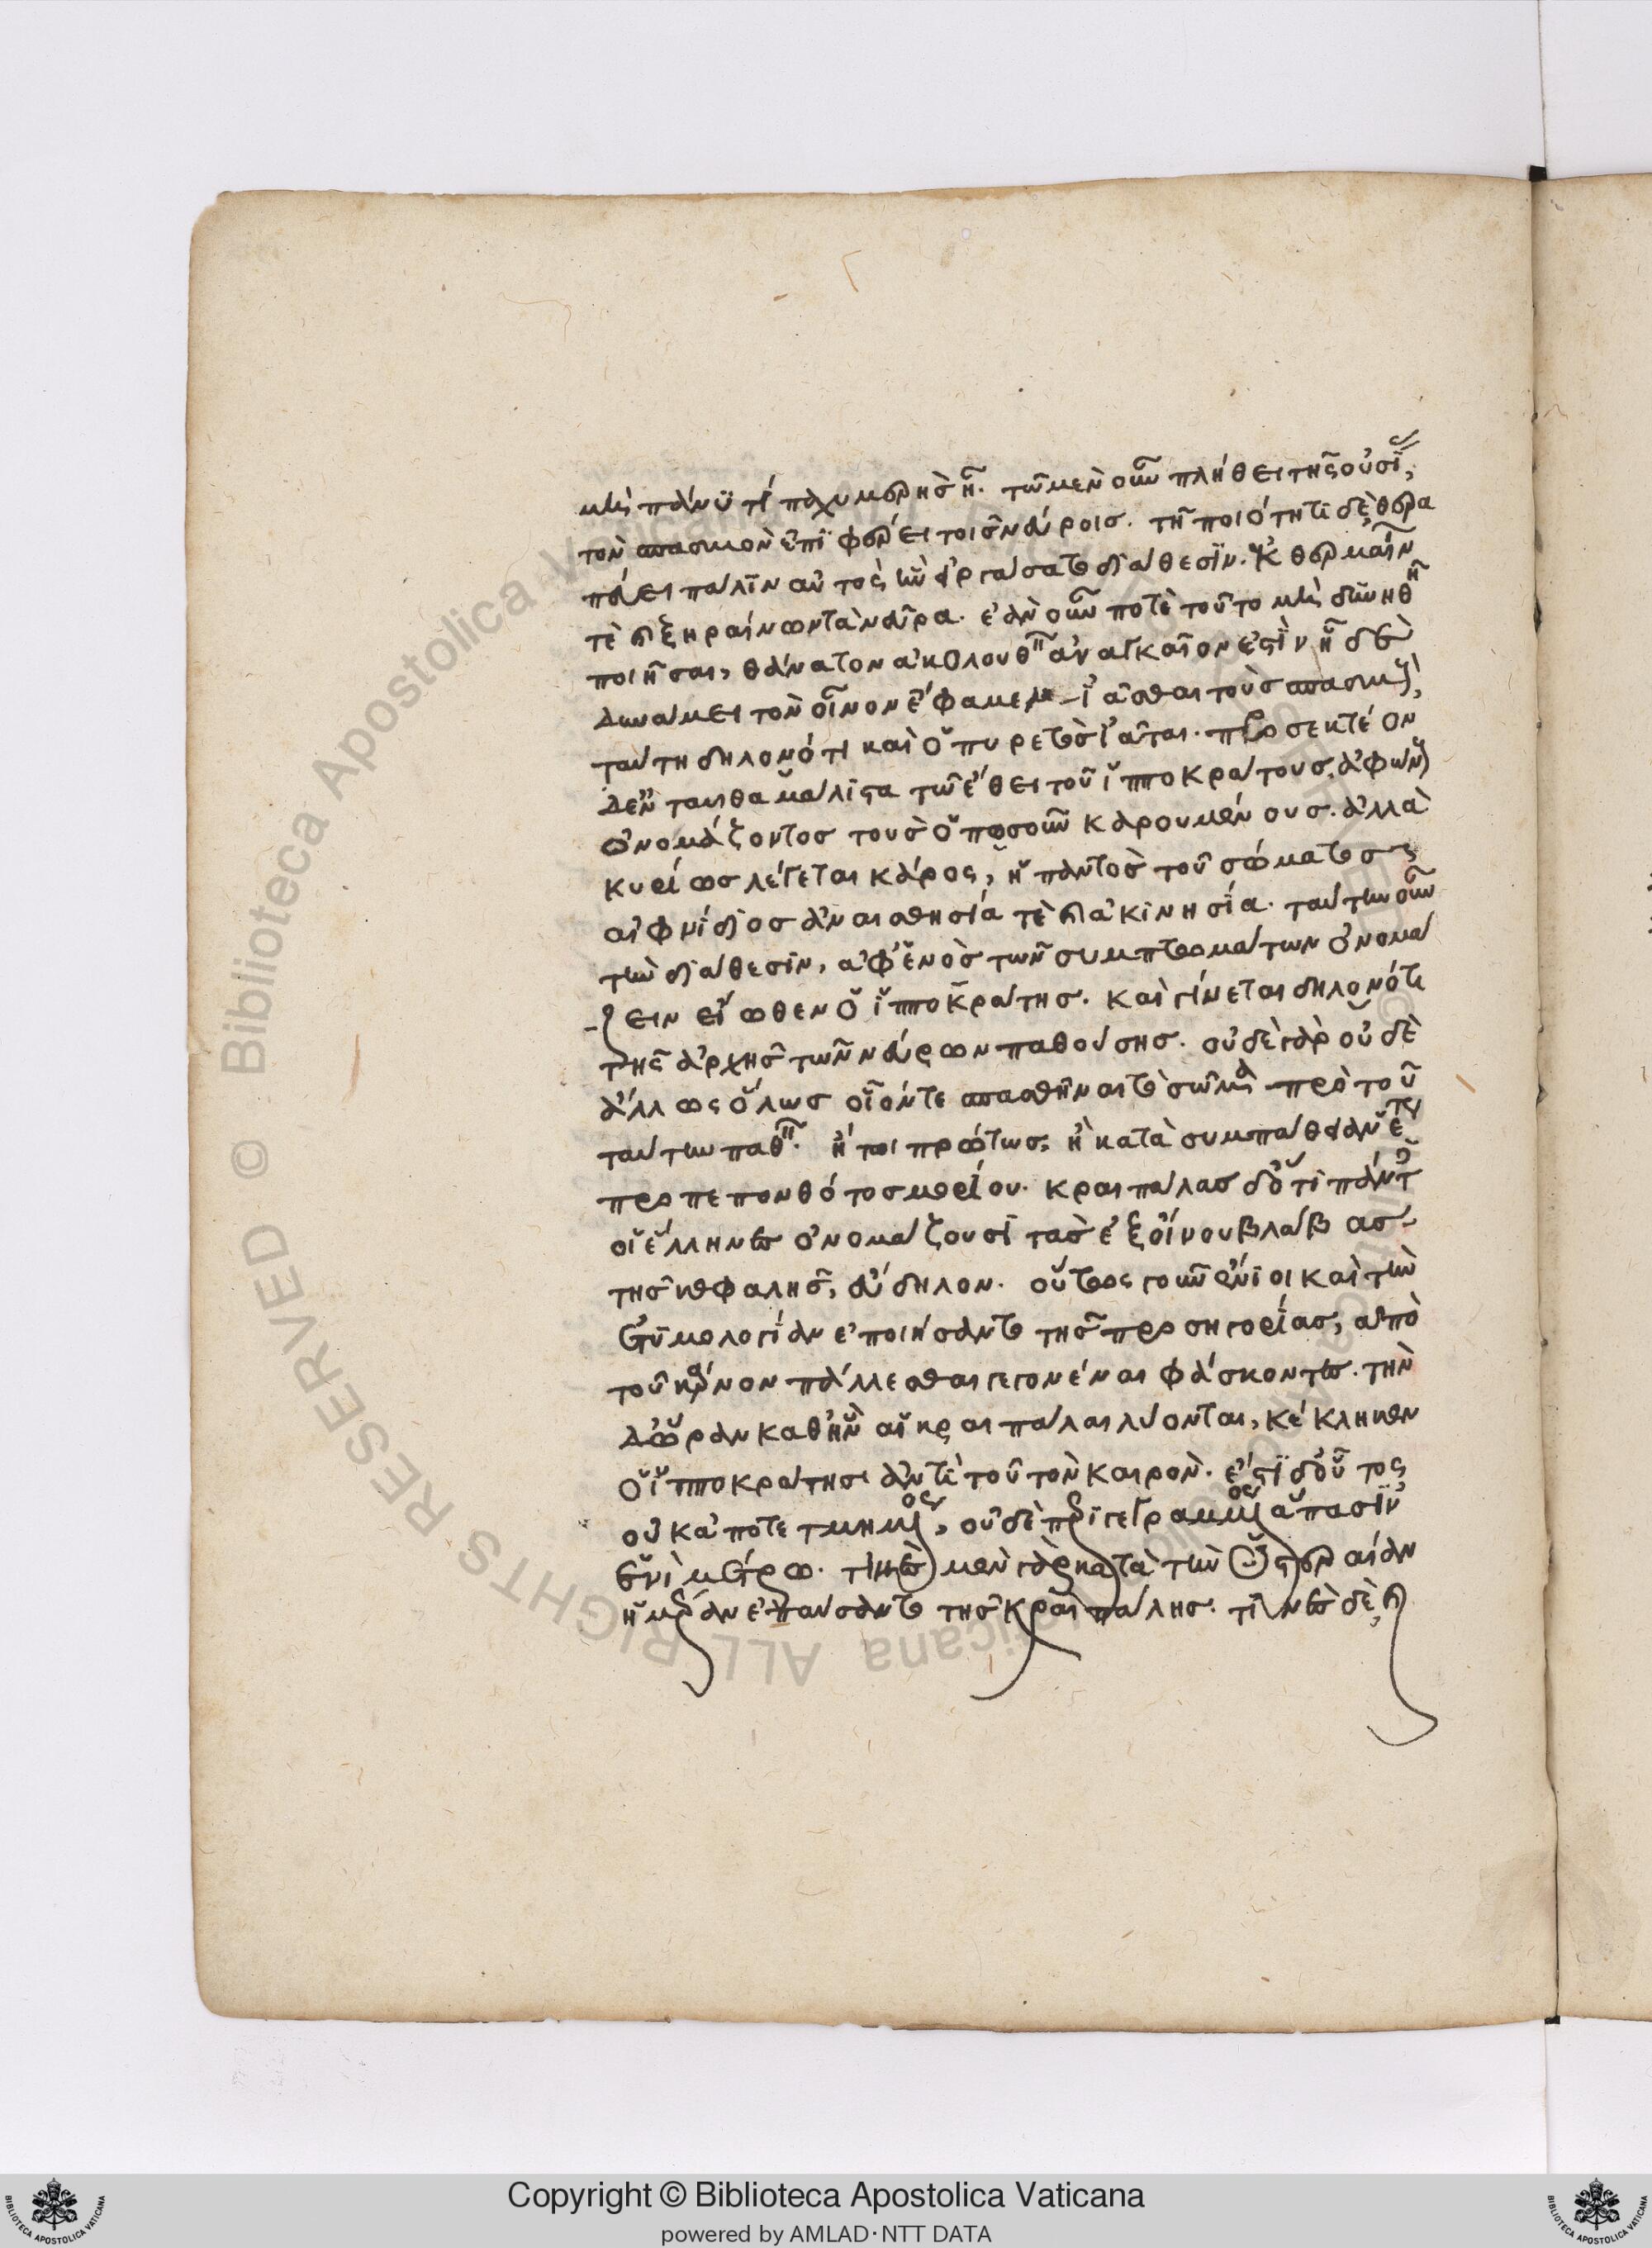 μὴ πάνυ τι παχυμερὴς ᾖ. τῷ μὲν οὖν πλήθει τῆς οὐσί,
τὸν σπασμὸν ἐπιφέρει τοῖς νεύροις. τῇ ποιότητι δὲ θερα
πεύει πάλιν αὐτὸς ἣν εἰργάσατο διάθεσιν. ἐκθερμαίν
τὲ καὶ ξηραίνων τὰ νεῦρα. ἐὰν οὖν ποτὲ τοῦτο μὴ δυνηθῇ
ποιῆσαι, θάνατον ἀκολουθῆ ἀναγκαῖον ἐστὶν ᾗ δὲ
δυνάμει τὸν οἶνον ἔφαμεν ἰᾶσθαι τοὺς σπασμ,
ταύτῃ δηλονότι καὶ ὁ πυρετὸς ἰᾶται. προσεκτέον
δ' ἐνταῦθα μάλιστα τῷ ἔθει τοῦ ἱπποκράτους, ἀφών
ὀνομάζοντος τοὺς ὁπωσοῦν καρουμένους. ἀλλὰ
κυρίως λέγεται κάρος, ἡ παντὸς τοῦ σώματος
αἰφνίδιος ἀναισθησία τὲ καὶ ἀκινησία. ταύτην οὖν
τὴν διάθεσιν, ἀφ' ἑνὸς τῶν συμπτωμάτων ὀνομά
ζειν εἴωθεν ὁ ἱπποκράτης. καὶ γίνεται δηλονότι
τῆς ἀρχῆς τῶν νεύρων παθούσης. οὐδὲ γὰρ οὐδὲ
ἄλλως ὅλως οἷόν τε σπασθῆναι τὸ σῶμα πρὸ τοῦ
ταύτην παθῆ. ἤτοι πρώτως, ἢ κατὰ συμπάθειαν ἑτ
προπεπονθότος μορίου. κραιπάλας δ' ὅτι πάντ
οἱ ἕλληνες ὀνομάζουσι τὰς ἐξ οἴνου βλάβας
τῆς κεφαλῆς, εὔδηλον. οὕτως γοῦν ἔνιοι καὶ τὴν
ἐτυμολογίαν ἐποιήσαντο τῆς προσηγορίας, ἀπὸ
τοῦ κάρηνον πάλλεσθαι γεγονέναι φάσκοντες. τὴν
δ' ὥραν καθ' ἣν αἱ κραιπάλαι λύονται, κέκληκεν
ὁ ἱπποκράτης ἀντὶ τοῦ τὸν καιρόν. ἔστι δ' οὗτος
οὐκ ἀποτετμημος, οὐδὲ περιγεγραμμος ἅπασιν
ἑνὶ μέτρῳ. τινὲς μὲν γὰρ κατὰ τὴν ὑστεραίαν
ἡμέραν ἐπαύσαντο τῆς κραιπάλης. τινὲς δὲ καὶ